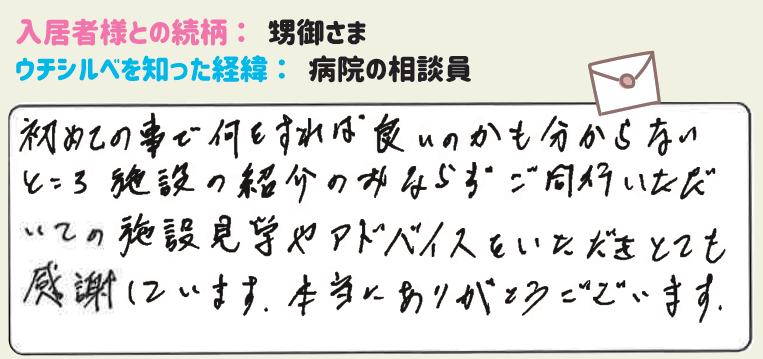 入居者様との続柄： 甥御さま
ウチシルベを知った経緯： 病院の相談員
初めての事で何をすれば良いのかも分からない
ところ施設の紹介のみならずご同行いただ
いての施設見学やアドバイスをいただきとても
感謝しています.本当にありがとうございます.